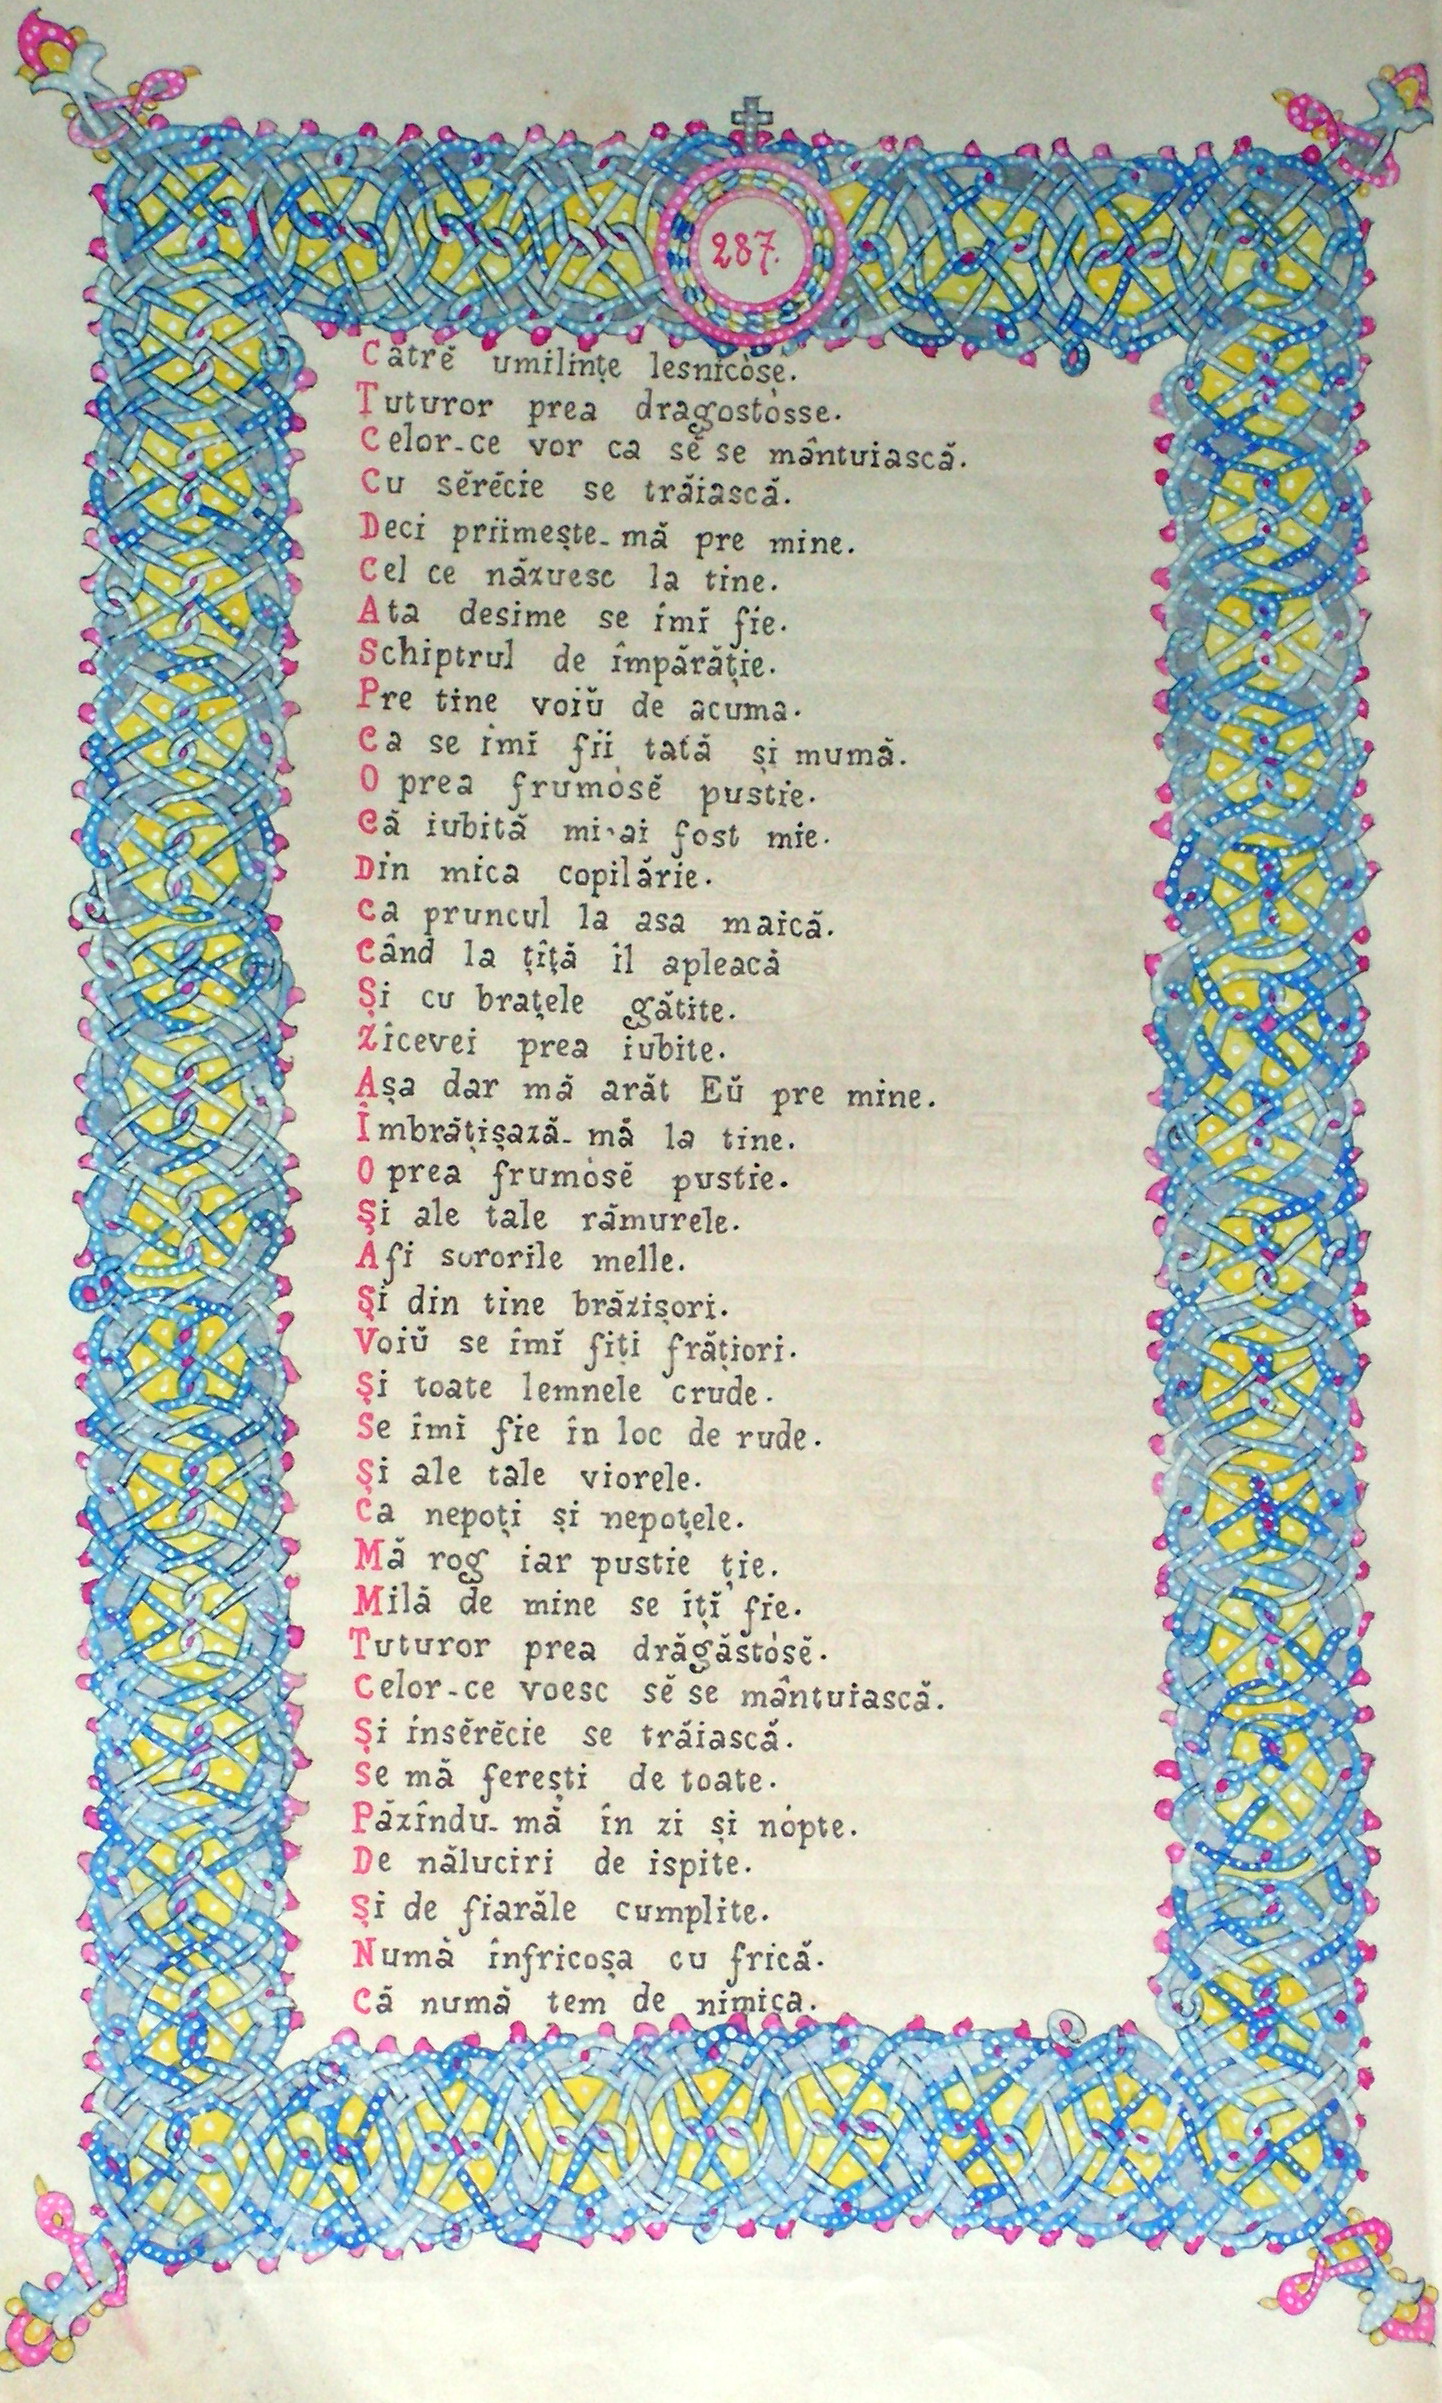 287.
Cătrĕ umilințe lesnicòse.
Tuturor prea dragostòsse.
Celor-ce vor ca sĕ se mântuiască.
Cu sĕrĕcie se trăiască.
Deci priimește-mă pre mine.
Cel ce năzuesc la tine.
Ata desime se îmĭ fie.
Schiptrul de împărăție.
Pre tine voiŭ de acuma.
Ca se îmĭ fii tată și mumă.
O prea frumòsĕ pustie.
Că iubită mi-ai fost mie.
Din mica copilărie.
Ca pruncul la asa maică.
Când la țîță îl apleacă
Și cu brațele gătite.
Zicevei prea iubite.
Așa dar mă arăt Eŭ pre mine.
Îmbrățișază-mă la tine.
O prea frumòsĕ pustie.
Și ale tale rămurele.
Afi surorile melle.
Și din tine brăzișori.
Voiŭ se îmĭ fiți frățiori.
Și toate lemnele crude.
Se îmĭ fie în loc de rude.
Și ale tale viorele.
Ca nepoți și nepoțele.
Mă rog iar pustie ție.
Milă de mine se îțĭ fie.
Tuturor prea drăgăstòsĕ.
Celor-ce voesc sĕ se mântuiască.
Și însĕrĕcie se trăiască.
Se mă ferești de toate.
Păzîndu-mă în zi și nópte.
De năluciri de ispite.
Și de fiarăle cumplite.
Numă înfricoșa cu frică.
Că numă tem de nimica.